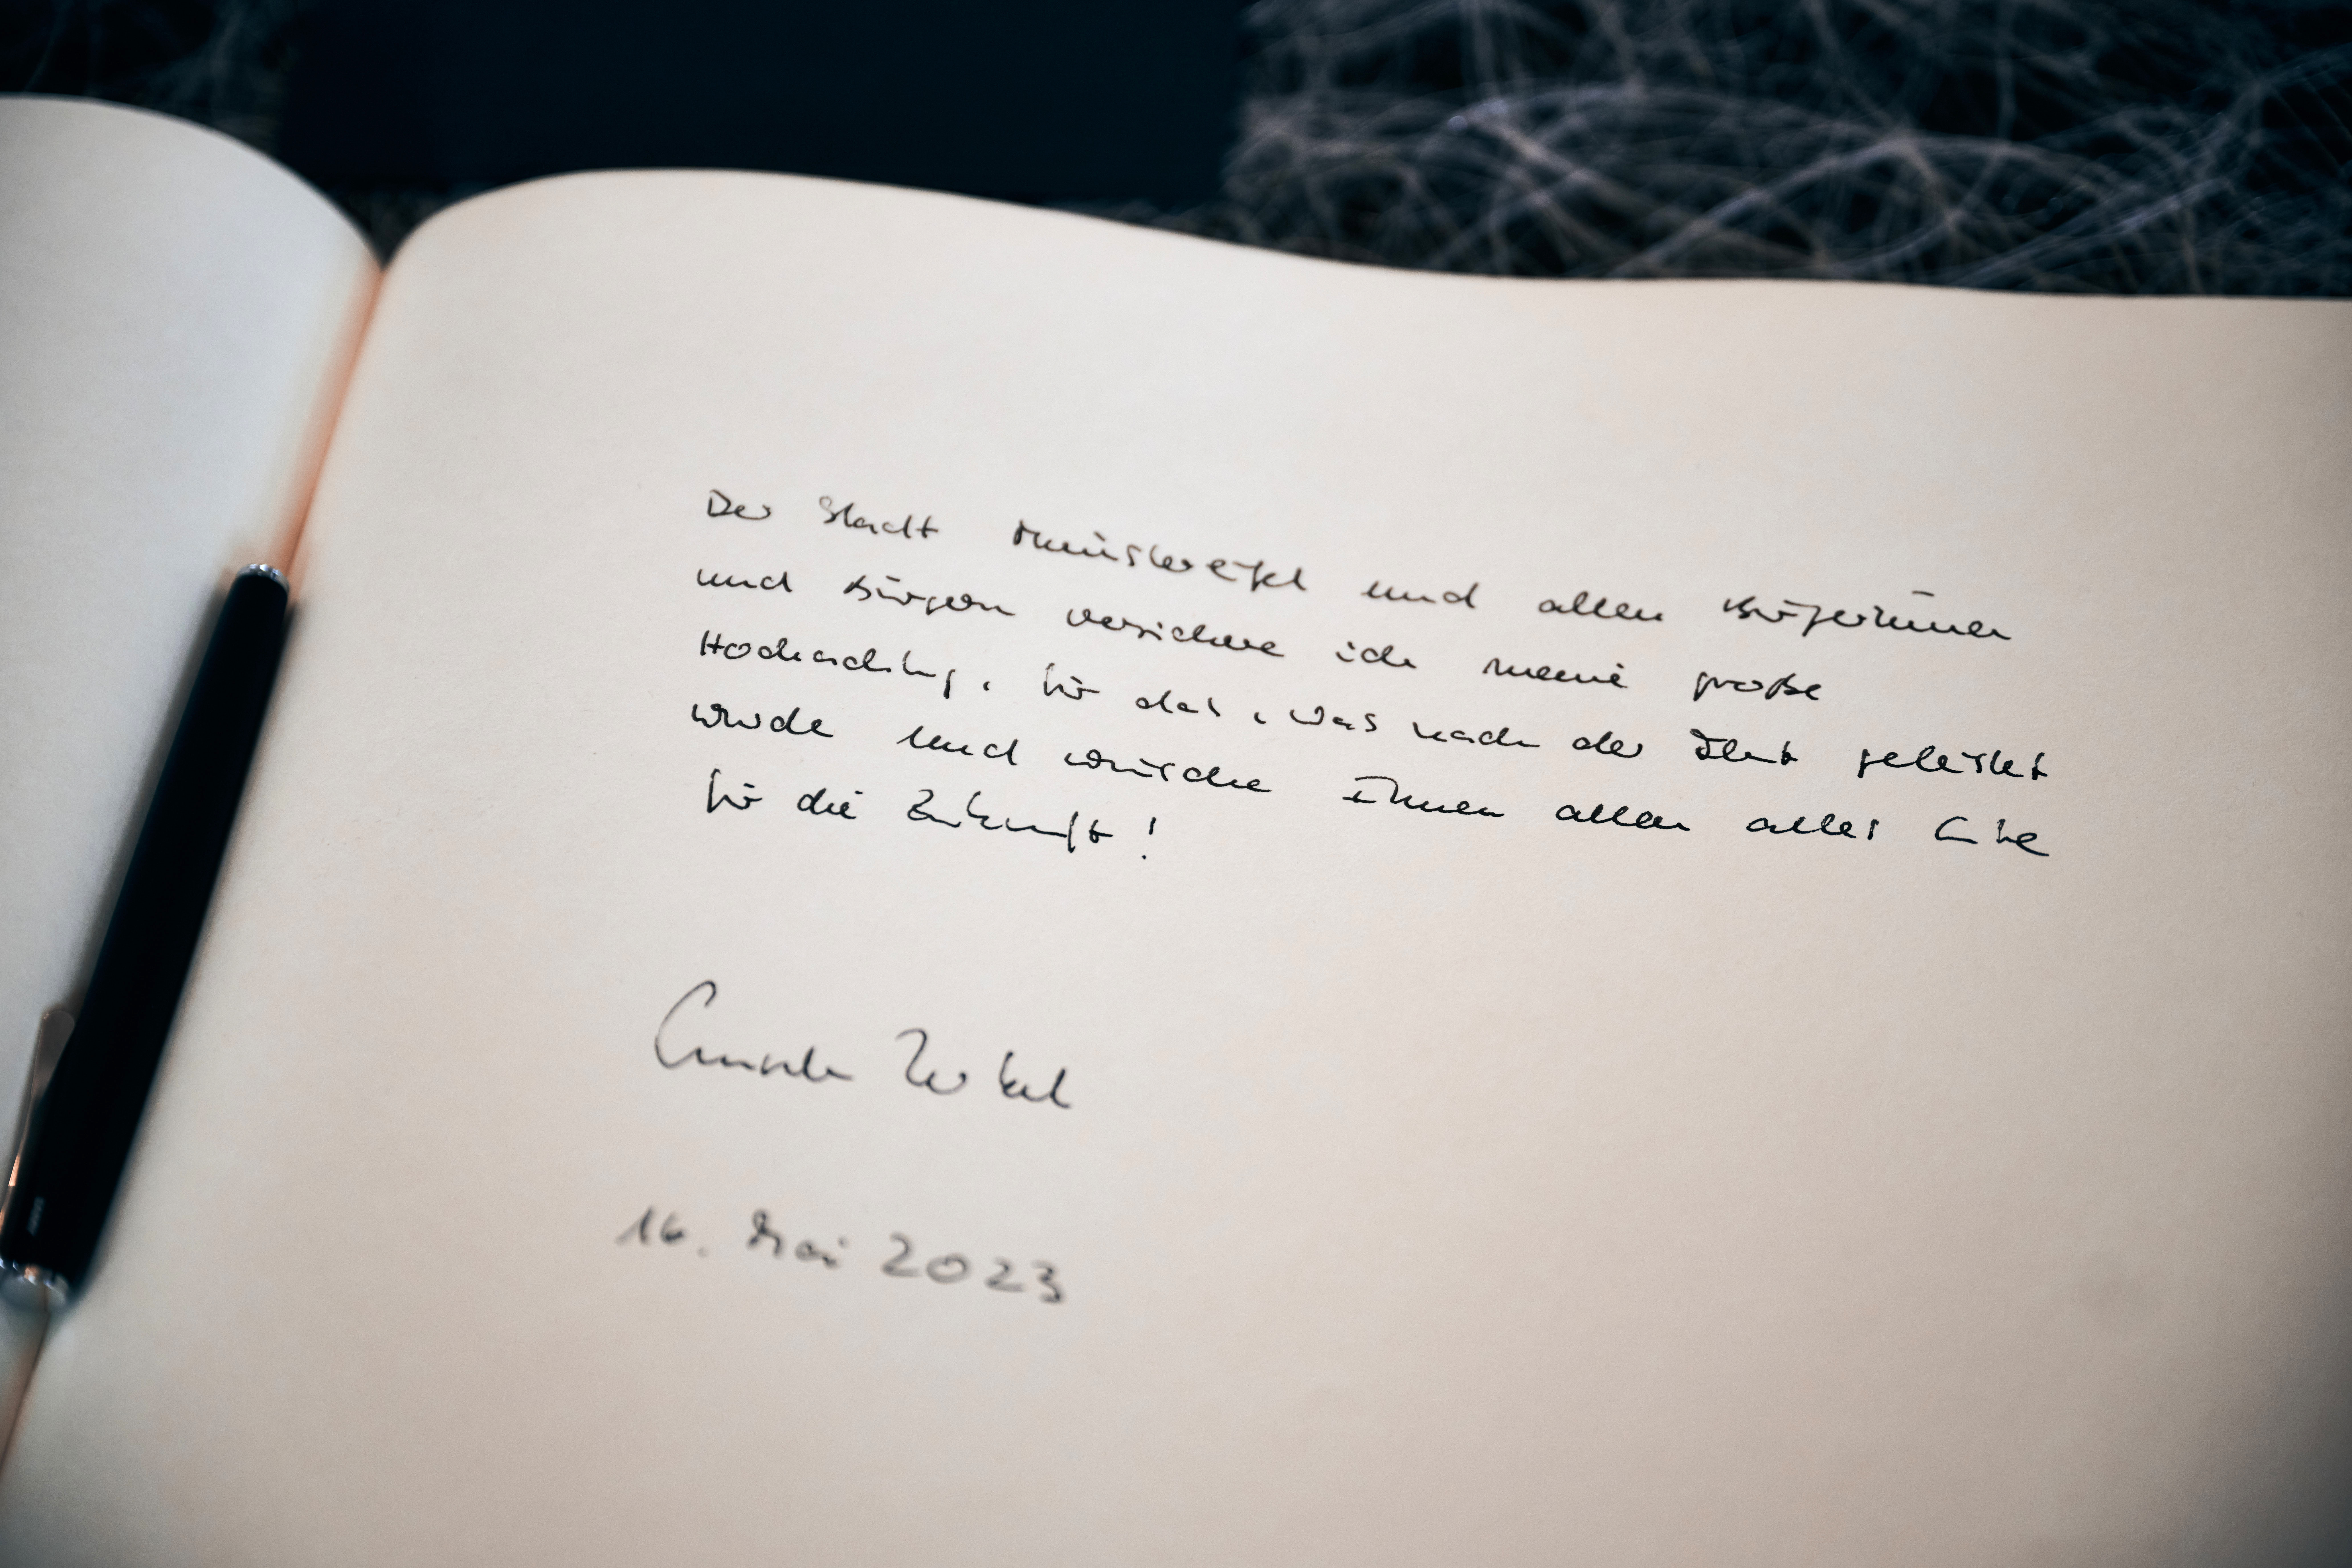 Der Stadt Münstereifel und allen Bürgerinnen
und Bürgern versichere ich meine große
Hochachtung, für das, was nach der Flut geleistet
wurde und wünsche Ihnen allen alles Gute
für die Zukunft!
Angela Merkel
16. Mai 2023